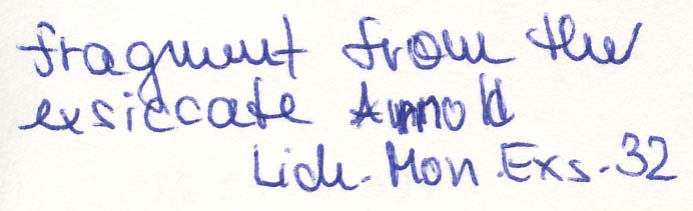 fragment from the
exsiccate Arnold
Lich. Mon. Exs. 32